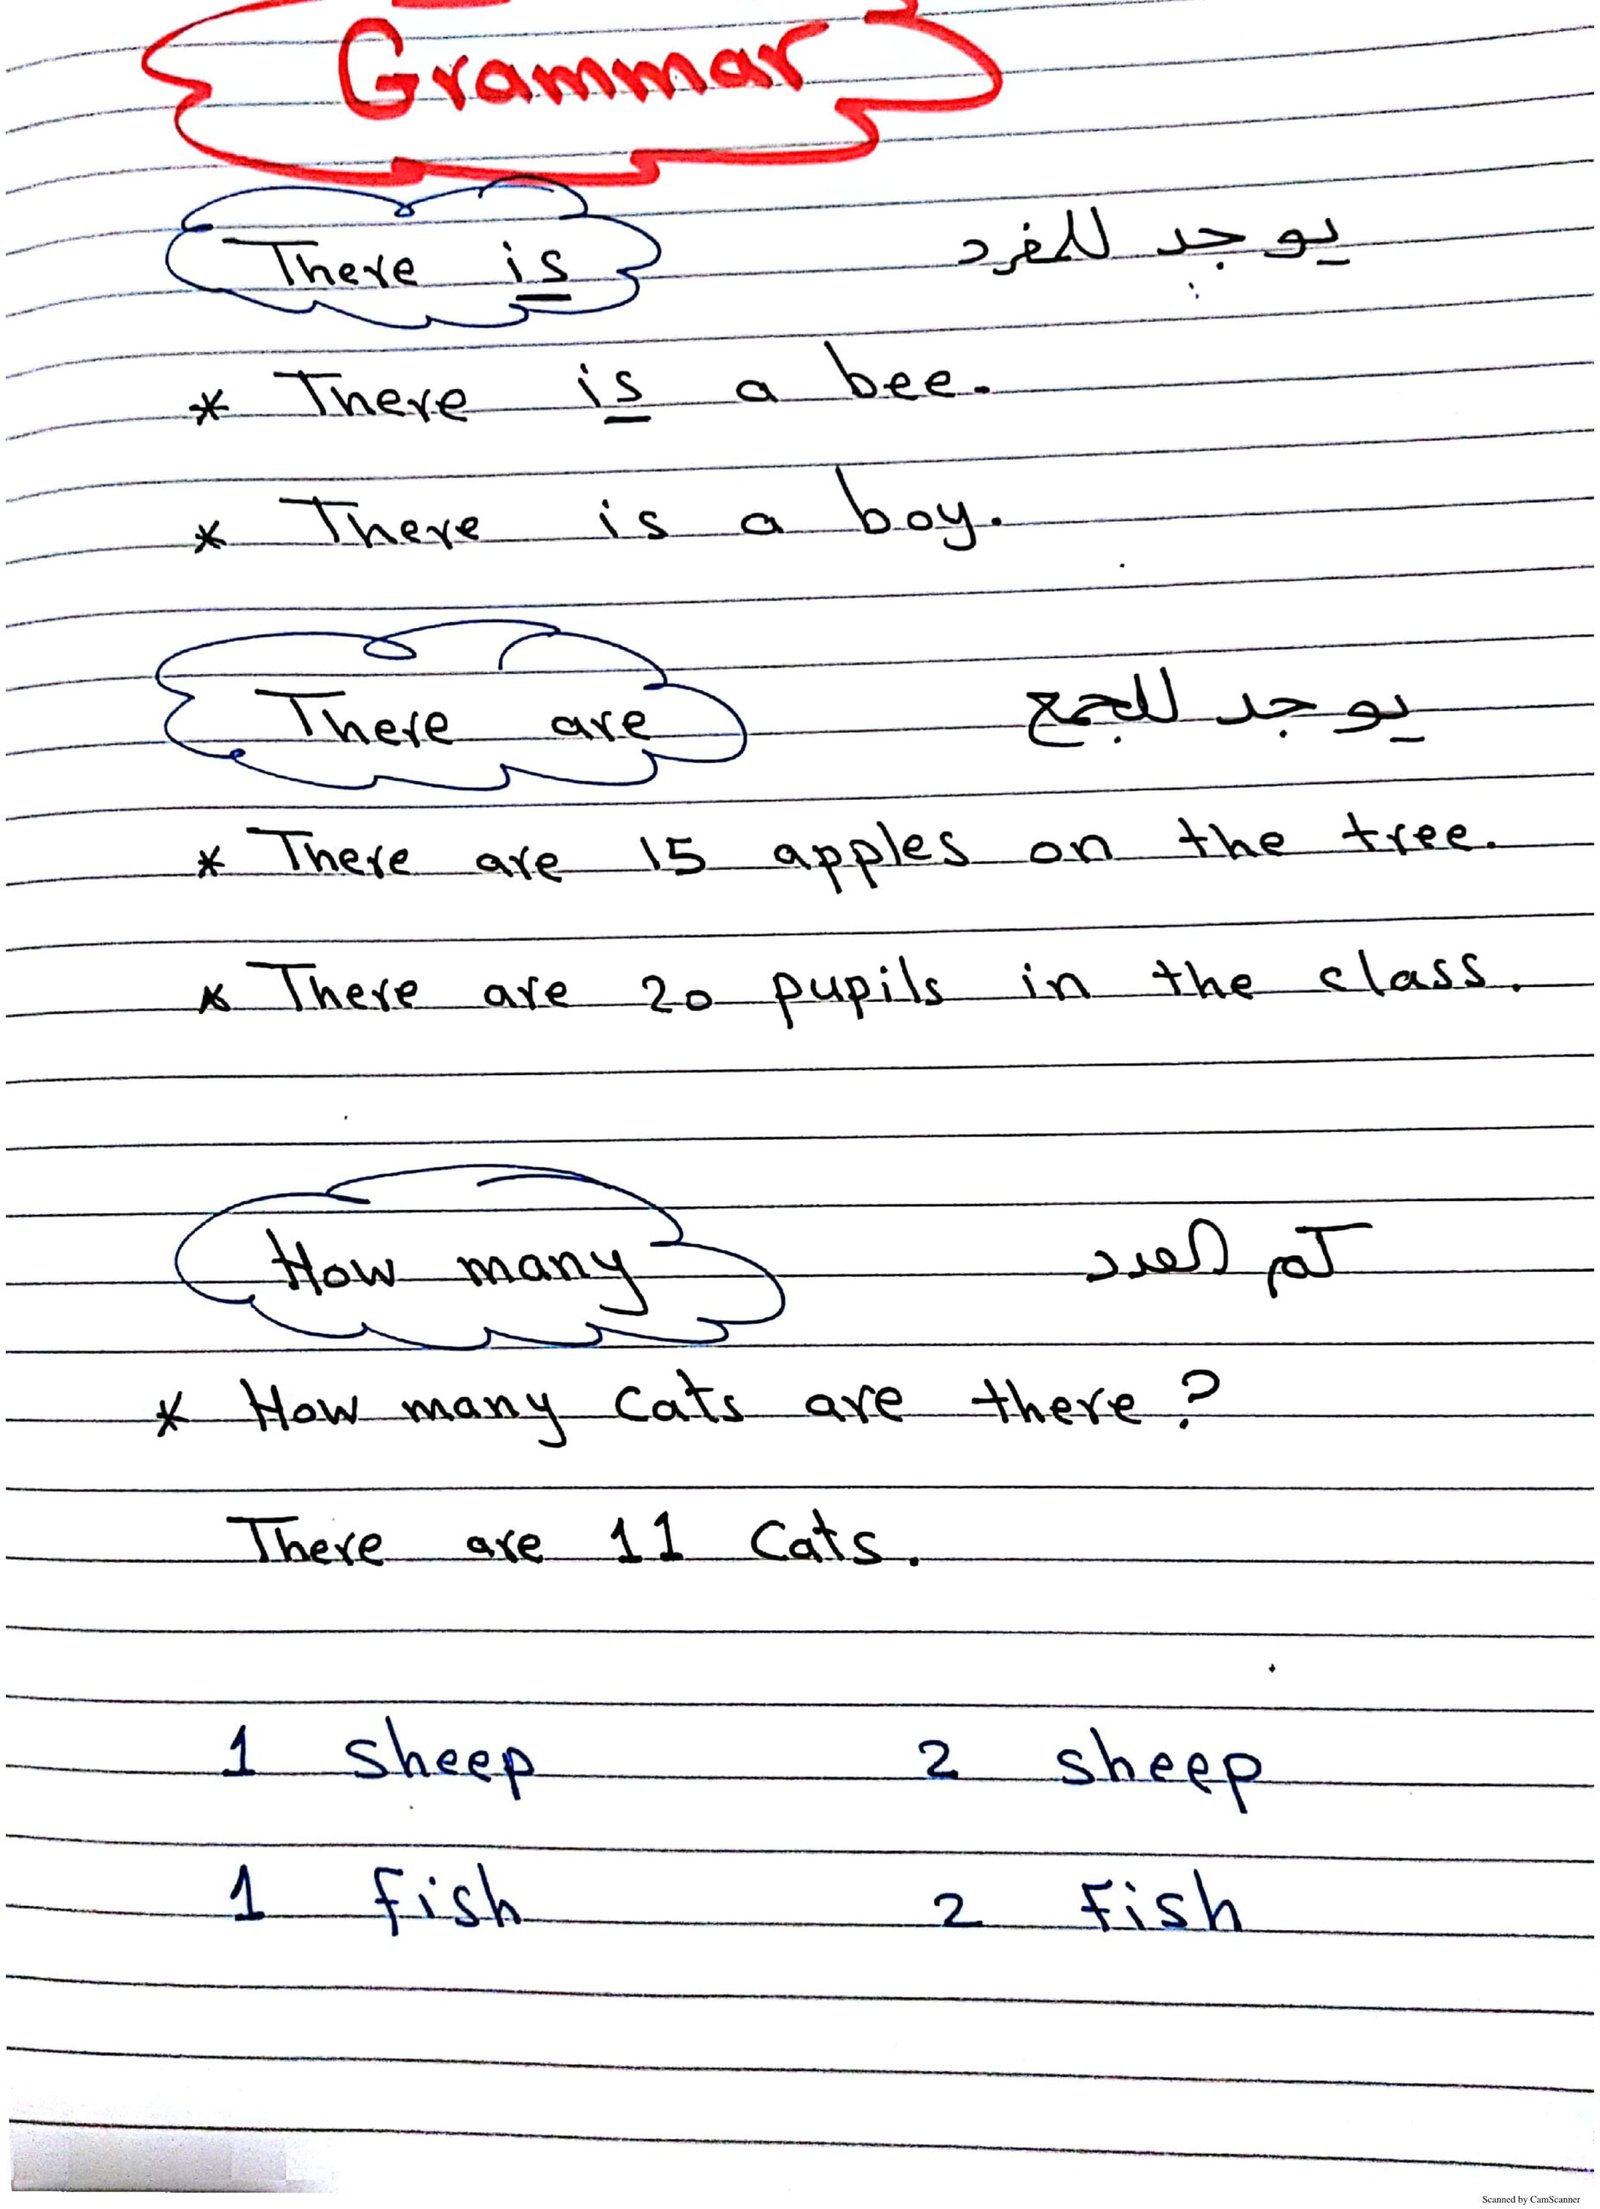 Grammar
There is يوجد للمفرد
* There is a bee.
* There is a boy.
There are يوجد للجمع
* There are 15 apples on the tree.
* There are 20 pupils in the class.
How many كم العدد
* How many cats are there?
There are 11 Cats.
1 sheep 2 sheep
1 fish 2 Fish
Scanned by CamScanner